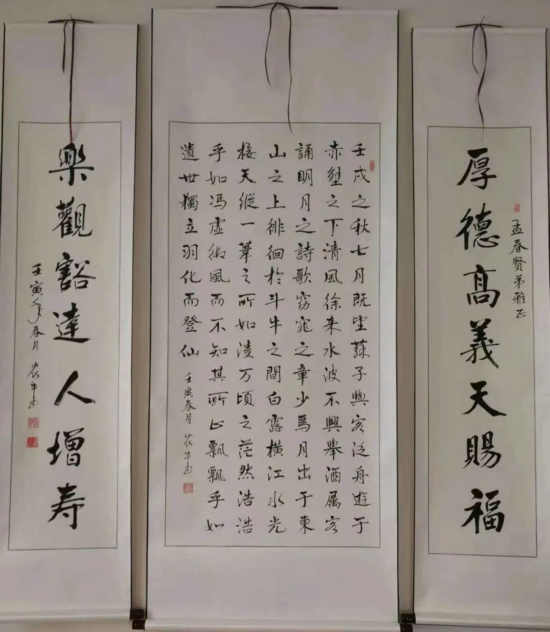 厚德髙義天賜福
孟春贤弟雅正
壬戌之秋七月既望蘇子與客泛舟遊于
赤壁之下清風徐来水波不興舉酒属客
誦明月之詩歌窈窕之章少焉月出于東
山之上徘徊於斗牛之間白露横江水光
接天縱一葦之所如凌万頃之茫然浩浩
乎如馮虚御風而不知其所止飄飄乎如
遗世獨立羽化而登仙
壬寅春月
樂觀豁達人增寿
壬寅年春月